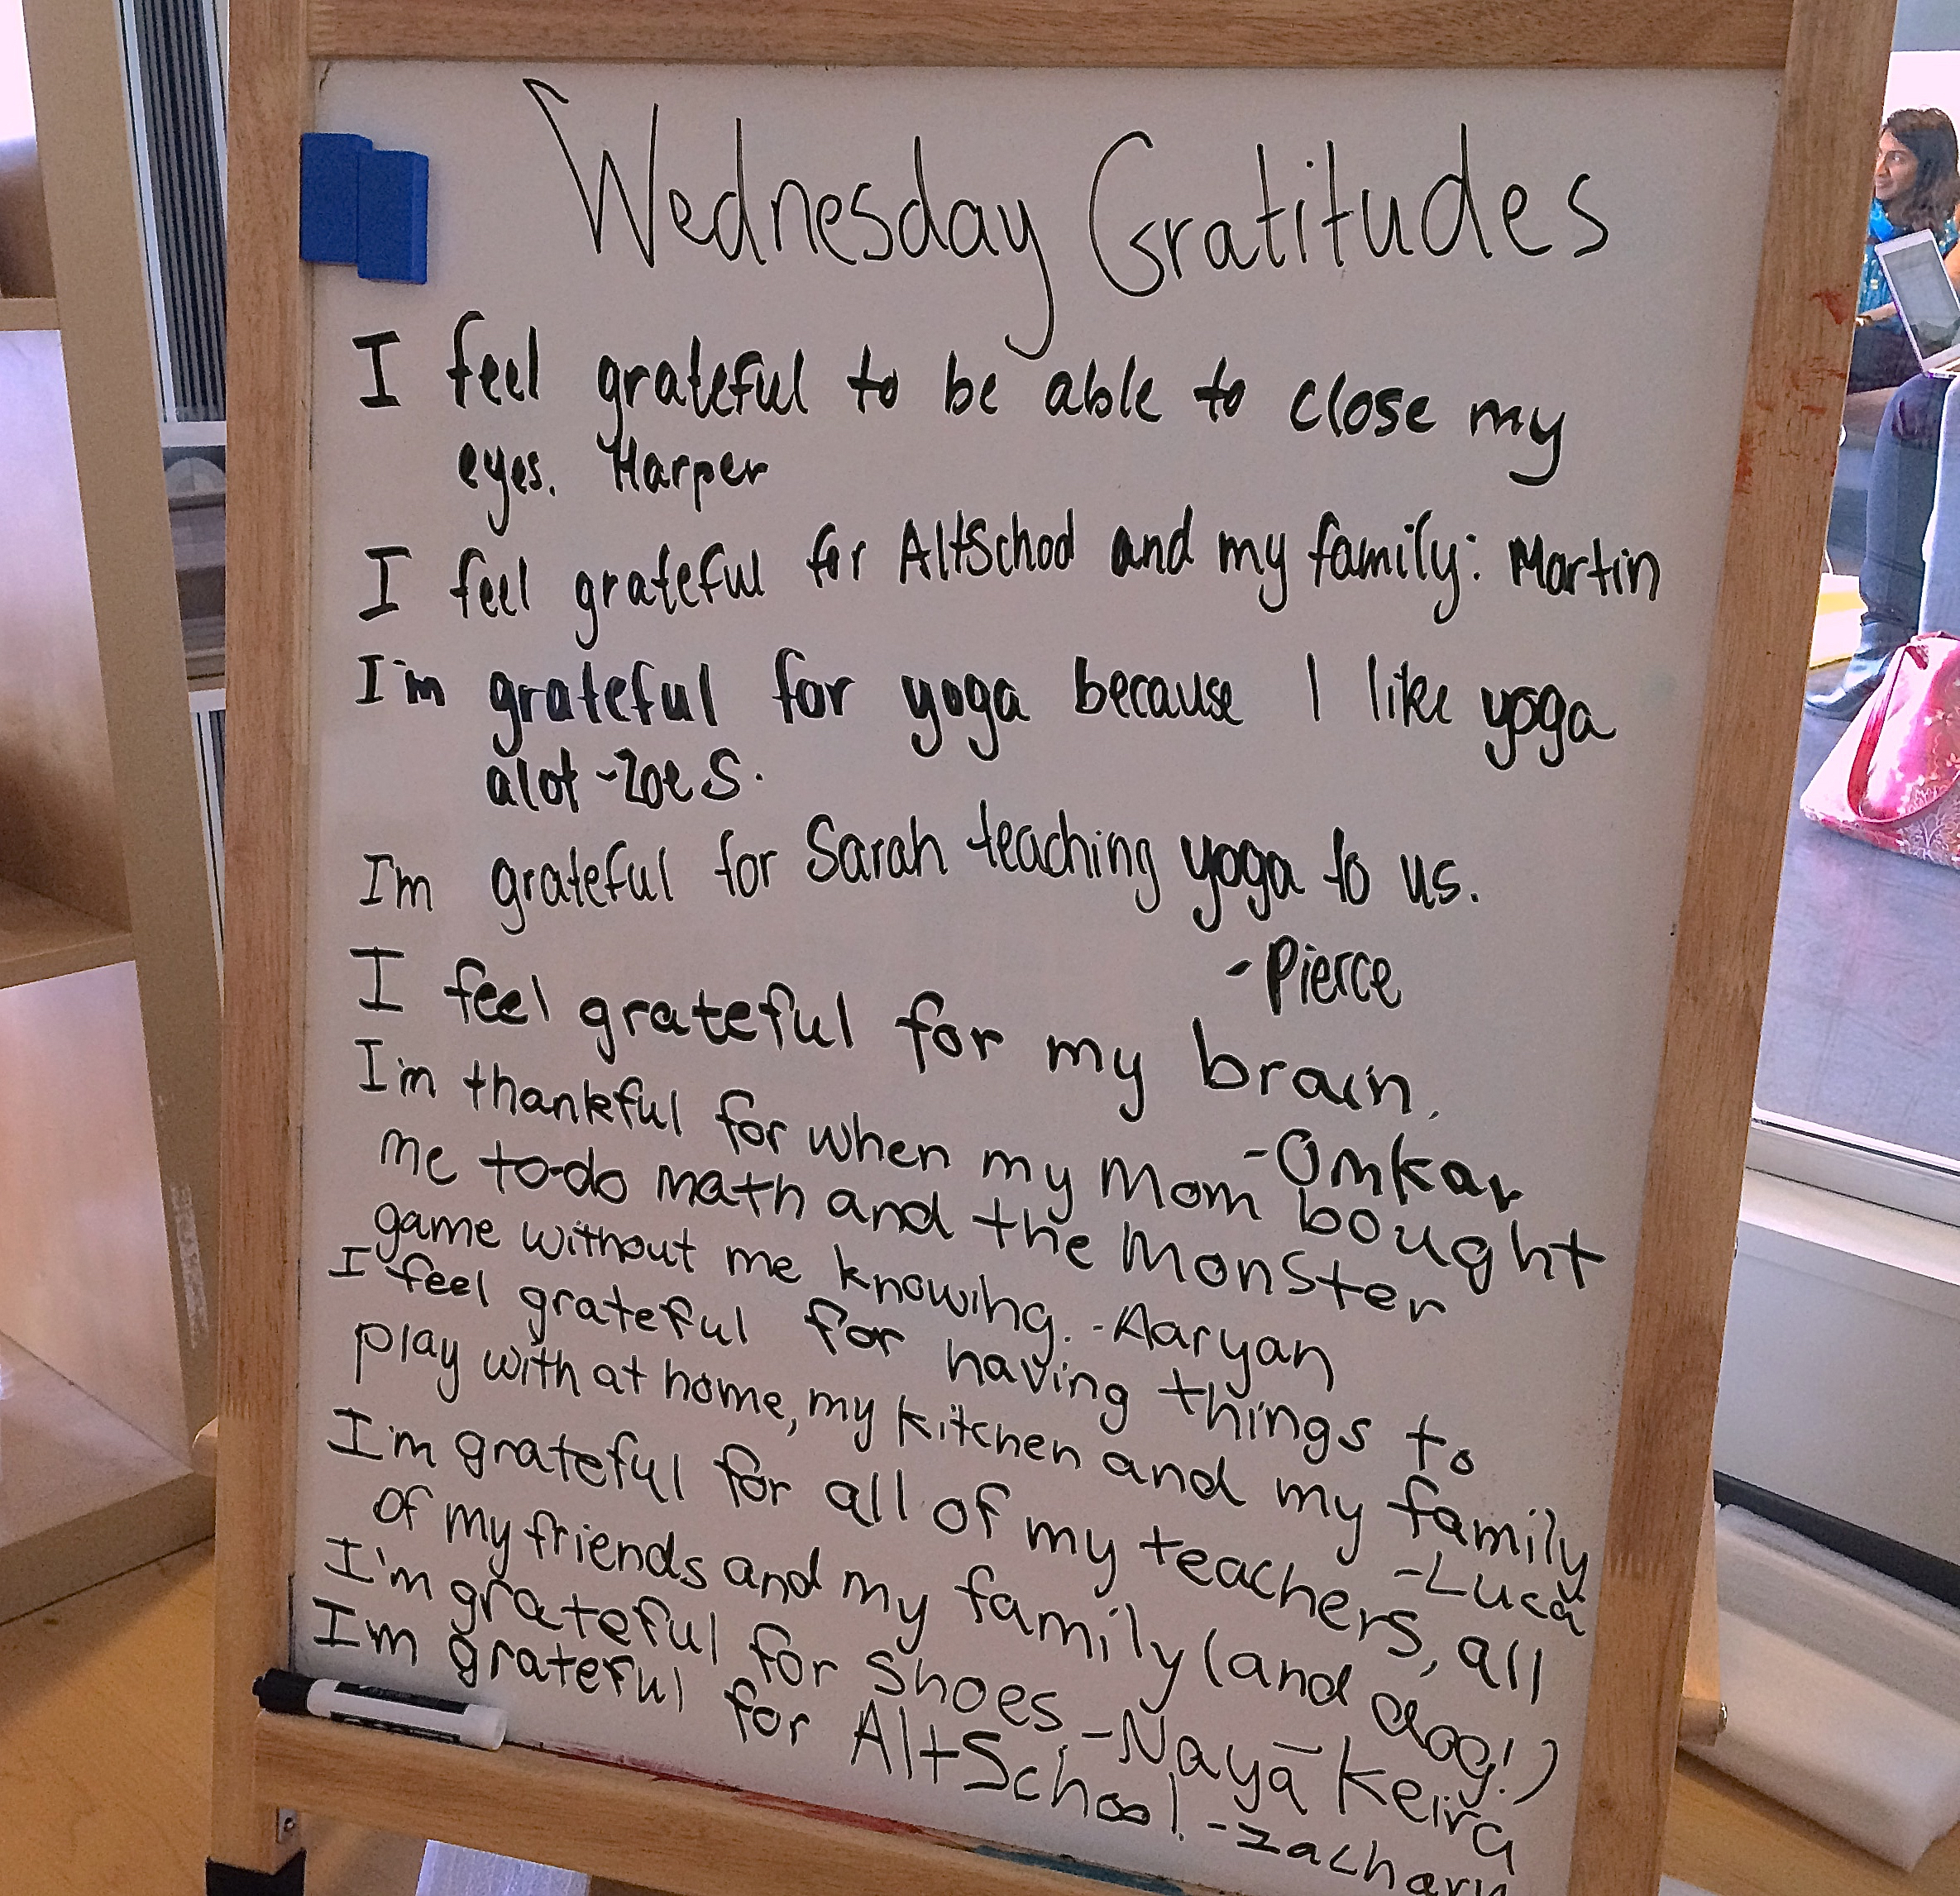 Wednesday Gratitudes
I feel grateful to be able to close my
eyes. Harper
I feel grateful for AltSchool and my family: Martin
I'm grateful for yoga because I like yoga
alot ~Zoe S.
I'm grateful for Sarah teaching yoga to us.
- Pierce
I feel grateful for my brain.
- Omkar
I'm thankful for when my Mom bought
me to-do math and the Monster
game without me knowing. - Aaryan
I feel grateful for having things to
play with at home, my kitchen and my family
- Luca
I'm grateful for all of my teachers, all
of my friends and my family (and dog!)
- Keira
I'm grateful for shoes. - Naya
I'm grateful for AltSchool. - Zachary